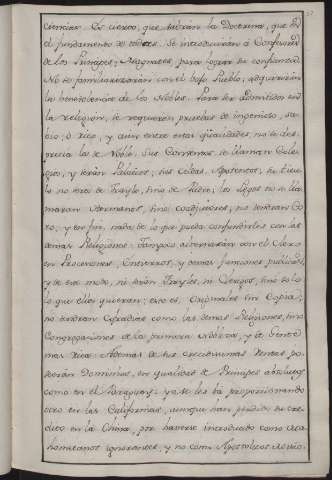 ciencias. Es cierto, que sabràn la Doctrina, que es
el fundamento de todos. Se introduciràn à Confesores
de los Principes, y Magnates, para lograr su confianza.
No se familiarizaràn con el baxo Pueblo, adquiriràn
la benevolencia de los Nobles. Para ser admitidos en
la religion, se requeriran pruebas de ingenioso, sa-
bio, ò rico, y aun entre estas qualidades, no se des-
precia la de Noble. Sus Conventos se llaman Cole-
gios, y seràn Palacios, sus Celdas Aposentos, su titu-
lo no serà de Frayle, sino de Padre, los Legos no se lla-
maràn Hermanos, sino coadjutores, no tendràn Co-
ro, y en fin, nada de lo que pueda confundirlos con las
demas Religiones. Tampoco alternaràn con el Clero
en Procesiones, Entierros, y demas funciones publicas,
y de este modo, ni seràn Frayles, ni Clerigos, sino solo
lo que ellos quieran; esto es, Originales sin Copia;
no tendràn Cofradias como las demas Religiones, sino
Congregaciones de la primera Nobleza, y de Gente
mas rica. Ademas de sus crecidisimas rentas po-
seeràn Dominios, en qualidad de Principes absolutos
como en el Paraguay: ya se les hà proporcionando
otro en las Californias, aunque han perdido su cre-
dito en la China, por haverse introducido como Ma-
hometanos ignorantes, y no como Apostolicos